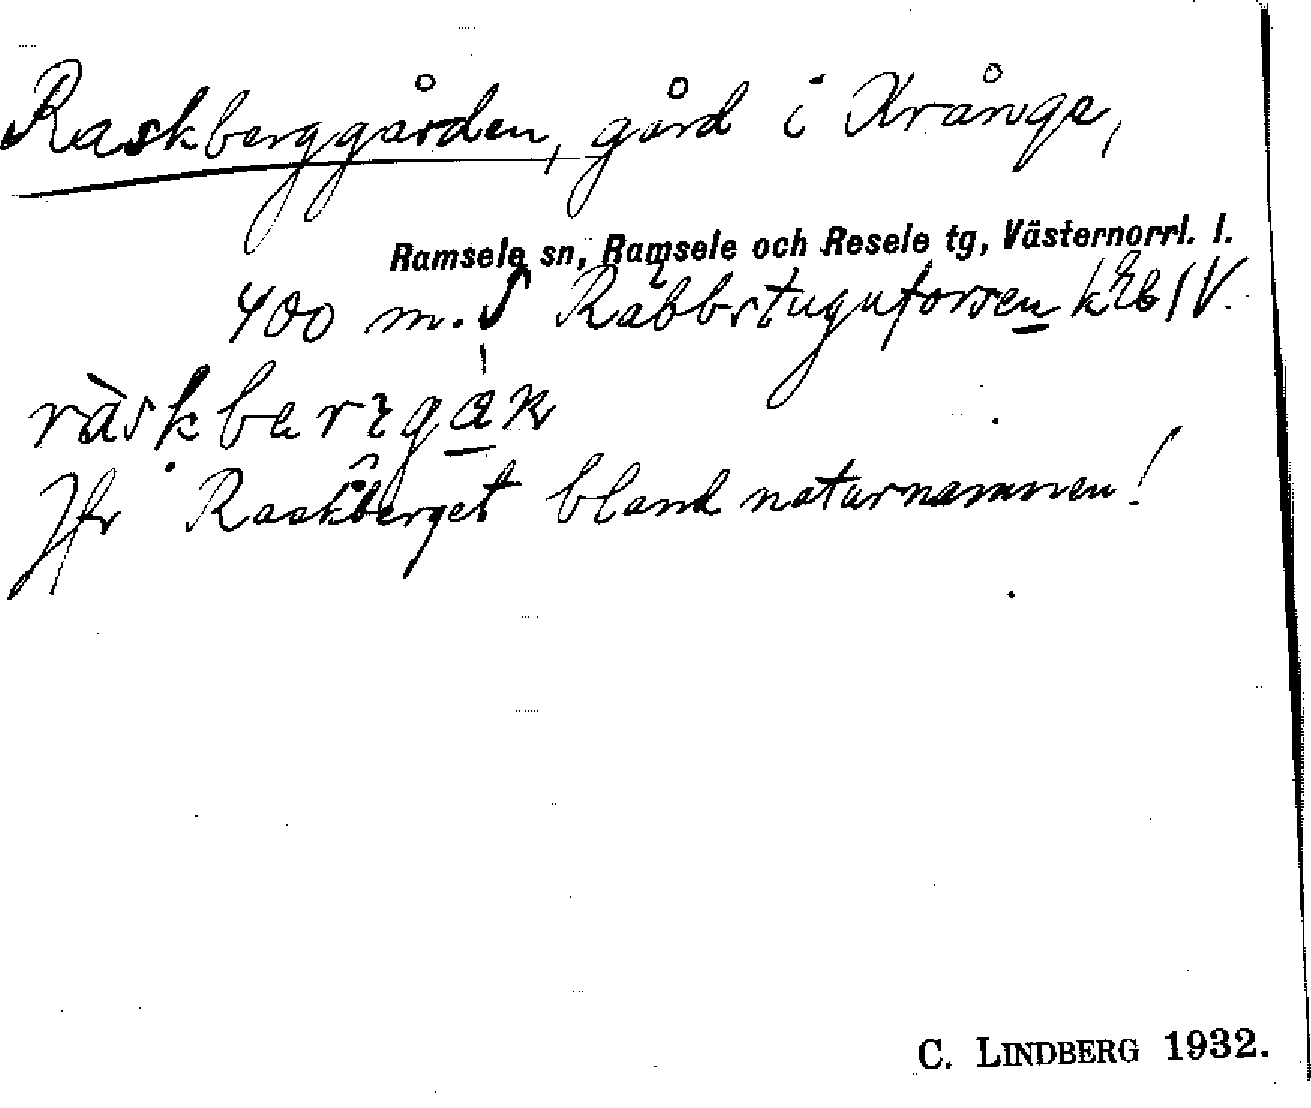 Raskberggården, gård i Krånge,
Ramsele sn, Ramsele och Resele tg, Västernorrl. l.
400 m. S Rabbstuguforsen
Jfr Raskberget bland naturnamnen!
C. LINDBERG 1932.